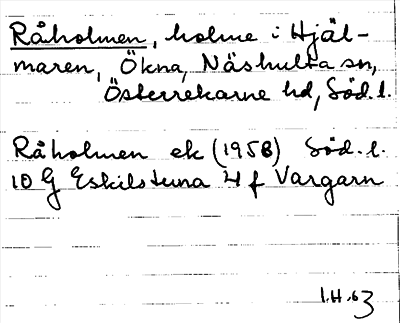 Råholmen, holme i Hjäl-
maren, Ökna, Näshulta sn,
Österrekarne hd, Söd. l.
Råholmen ek (1958) Söd. l.
10 G Eskilstuna 4 f Vargarn
I.H.63